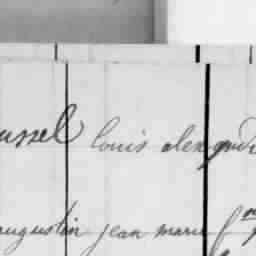 ussel louis alexandr
augustin jean marie f